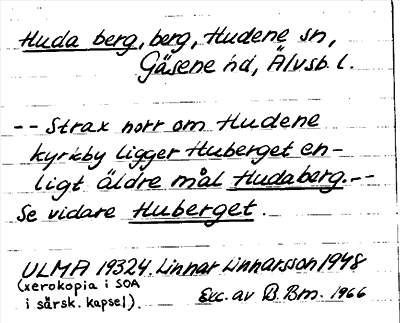 Huda berg, berg, Hudene sn,
Gäsene hd, Älvsb. l.
-- Strax norr om Hudene
kyrkby ligger Huberget en-
ligt äldre mål Hudaberg.--
Se vidare Huberget.
ULMA 19324. Linnar Linnarsson 1948
(xerokopia i SOA
i särsk. kapsel).
Exc. av B. Bm. 1966